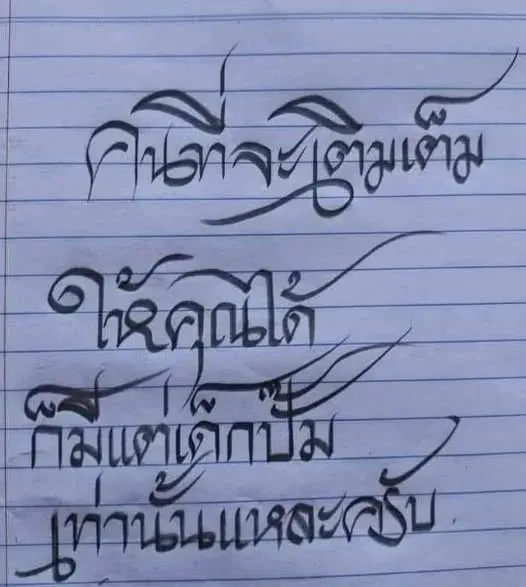 คนที่จะเติมเต็ม
ให้คุณได้
ก็มีแต่เด็กปั๊ม
เท่านั้นแหละครับ